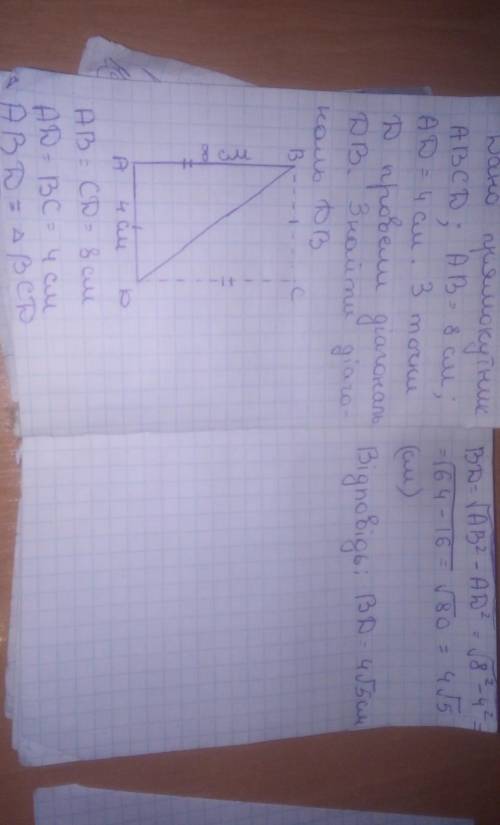 Дано прямокутник
ABCD; AB = 8 см;
AD = 4 см. З точки
D провели діагональ
DB. Знайти діаго-
наль DB
B C
8 см
A 4 см D
AB = CD = 8 см
AD = BC = 4 см
ABD = △BCD
BD = √AB² - AD² = √8² - 4² =
= √64 - 16 = √80 = 4√5
(см)
Відповідь: BD = 4√5 см